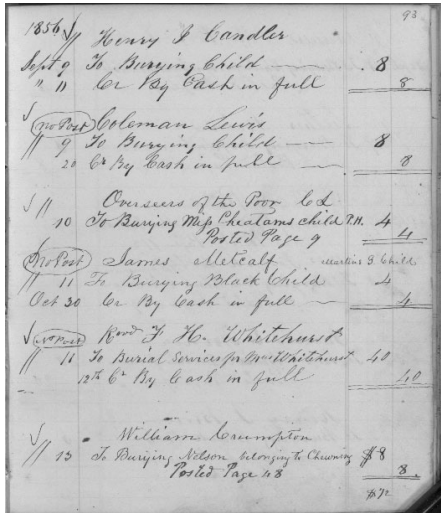 93
1856 Henry J Candler
Sept 9 To Burying Child 8
" 11 Cr By Cash in full 8
No Post Coleman Lewis
" 9 To Burying Child 8
20 Cr By Cash in full 8
" Overseers of the Poor C L
10 To Burying Miss Cheatams child P.H. 4
Posted Page 9 4
No Post James Metcalf Child
" 11 To Burying Black Child 4
Oct 30 Cr By Cash in full 4
No Post Revd F H. Whitehurst
" 11 To Burial Services for Mrs Whitehurst 40
12th Cr By Cash in full 40
William Crumpton
" 13 To Burying Nelson belonging to Chewning $8
Posted Page 48 8
$72